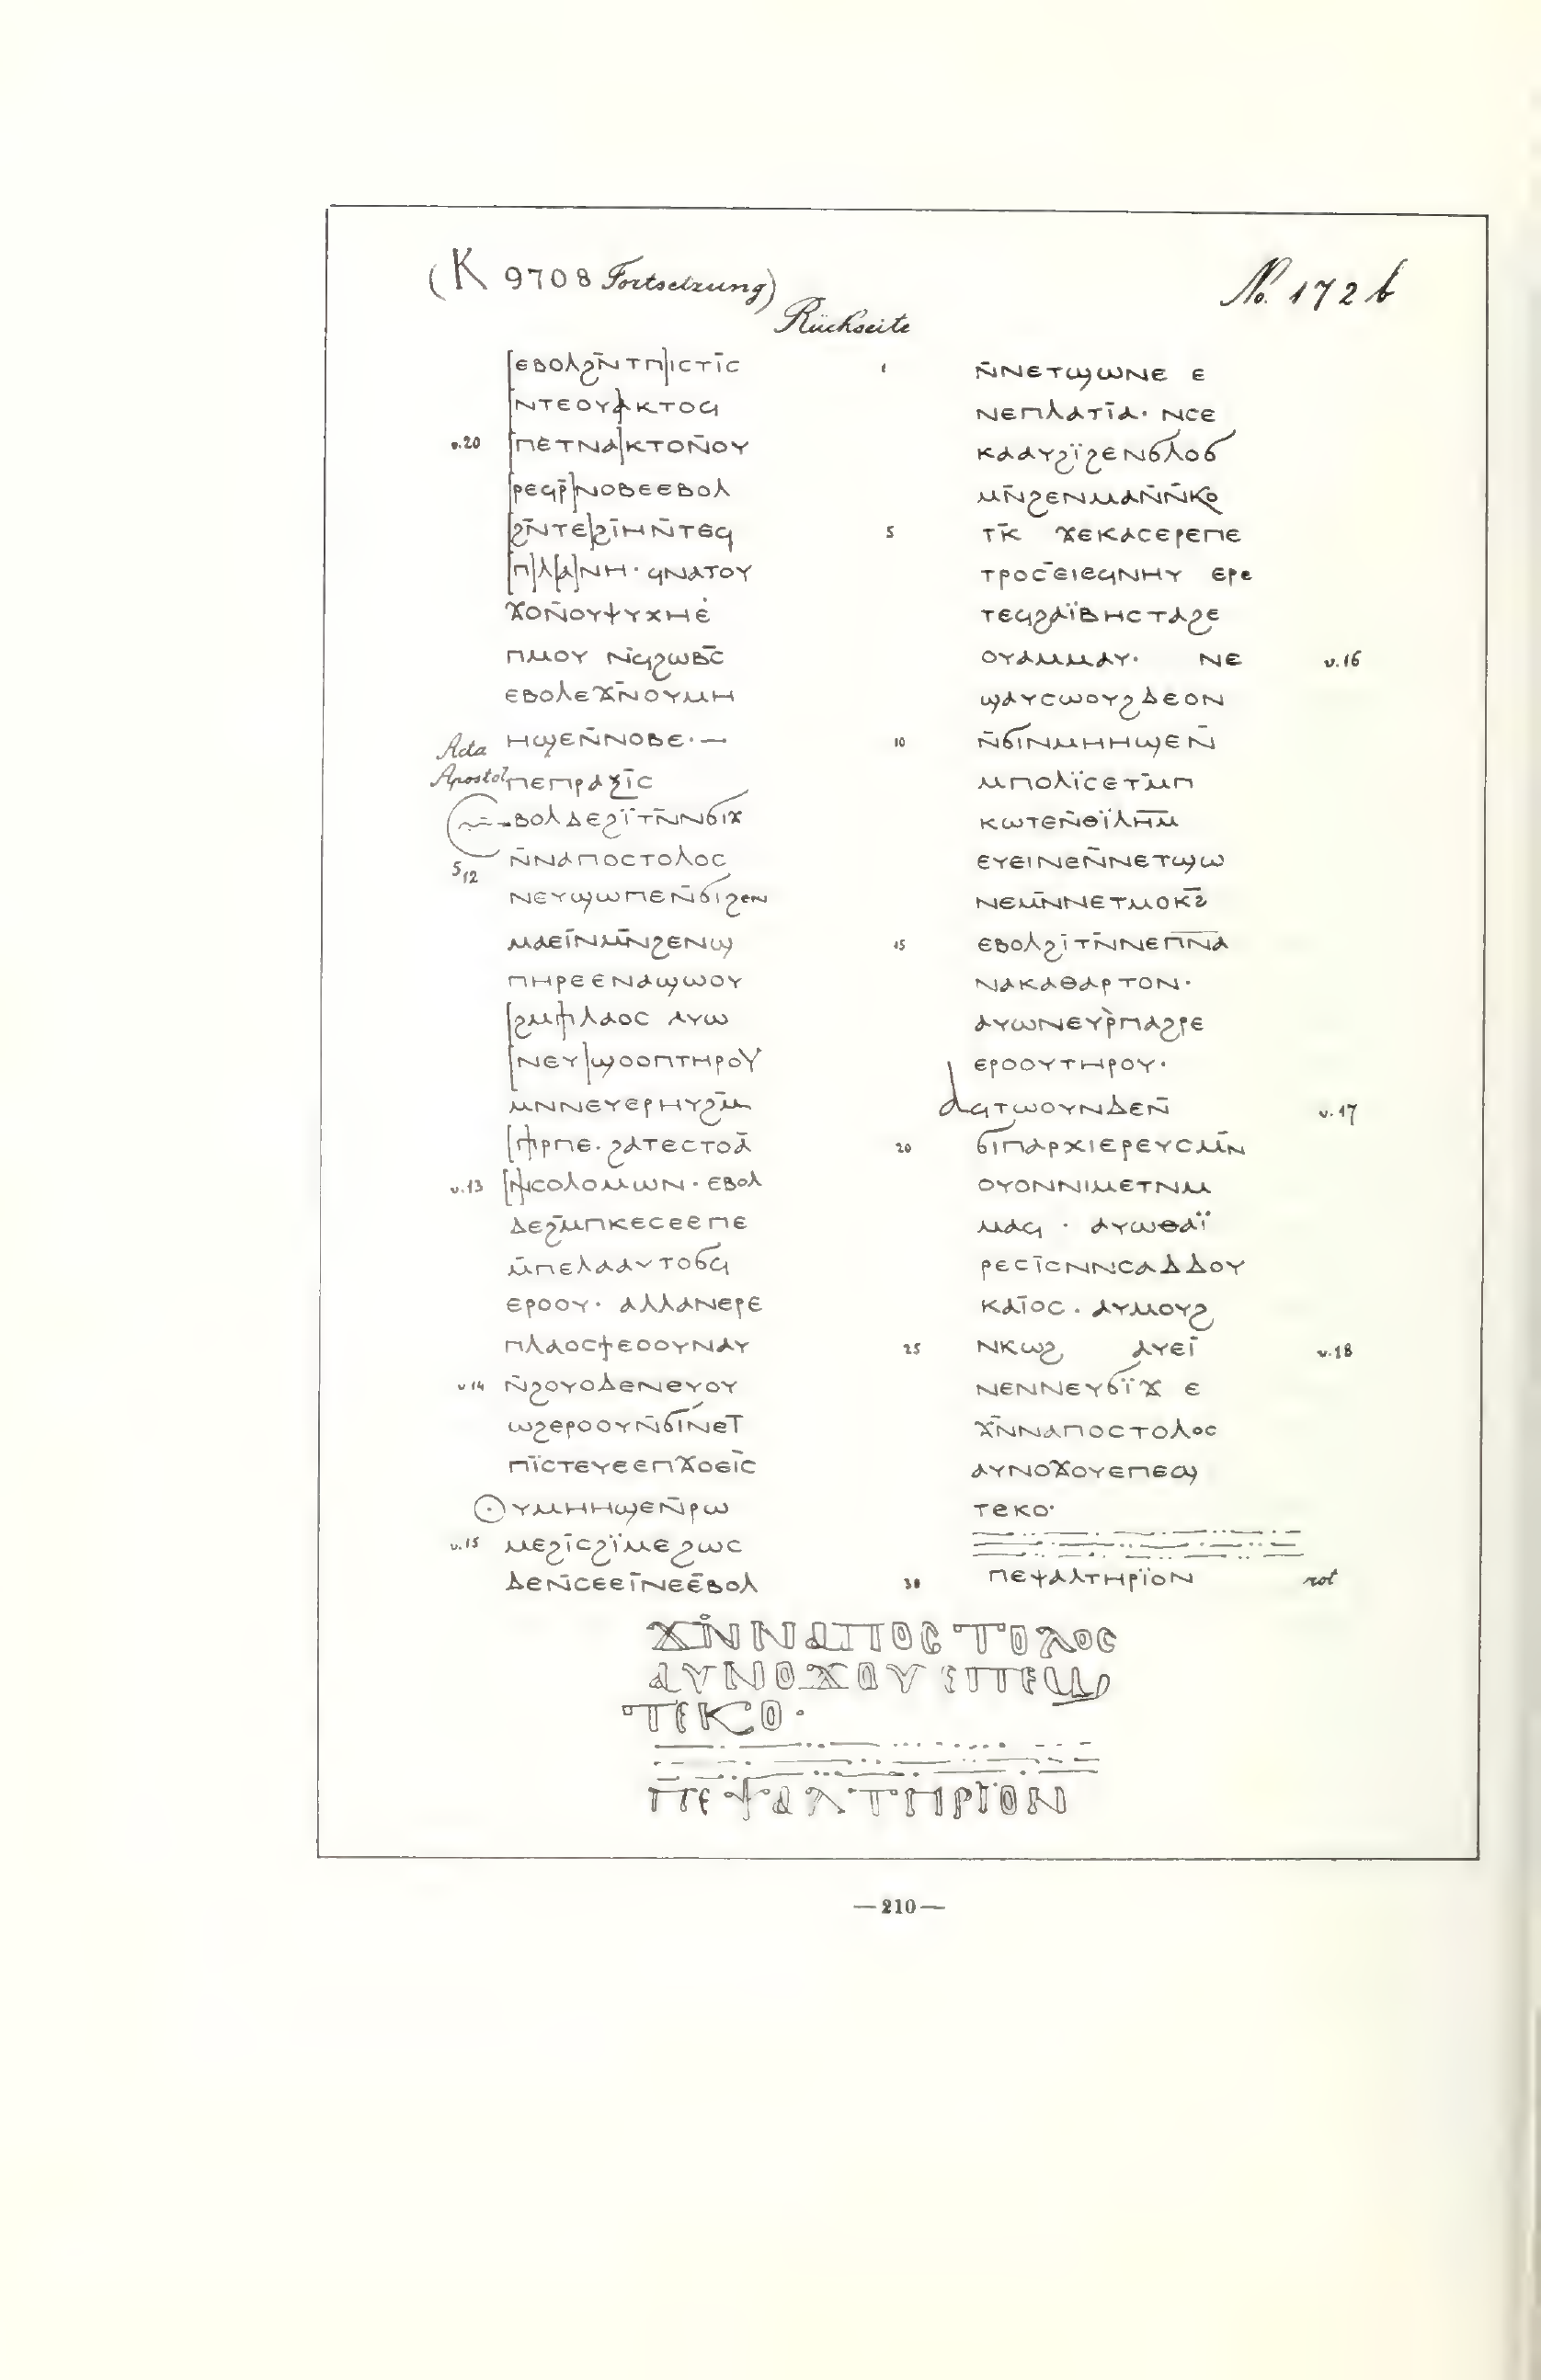 (K 9708 Fortsetzung)
No. 172 b
Rückseite
[ⲉⲃⲟⲗϩⲛ̄ⲧⲡ]ⲓⲥⲧⲓ̄ⲥ
[ⲛⲧⲉⲟⲩ]ⲁⲕⲧⲟϥ
v.20 [ⲡⲉⲧⲛⲁ]ⲕⲧⲟⲛ̄ⲟⲩ
[ⲣⲉϥⲣ̄]ⲛⲟⲃⲉⲉⲃⲟⲗ
[ϩⲛ̄ⲧⲉ]ϩⲓ̄ⲏⲛ̄ⲧⲉϥ
[ⲡ]ⲗ[ⲁ]ⲛⲏ· ϥⲛⲁⲧⲟⲩ
ϫⲟⲛ̄ⲟⲩⲯⲩⲭⲏⲉ̇
ⲡⲙⲟⲩ ⲛϥ̄ϩⲱⲃⲥ̄
ⲉⲃⲟⲗⲉϫⲛ̄ⲟⲩⲙⲏ
ⲏϣⲉⲛ̄ⲛⲟⲃⲉ·—
Acta
Apostol.
ⲡⲉⲡⲣⲁⲝⲓ̄ⲥ
ⲃⲟⲗⲇⲉϩⲓ̈ⲧⲛ̄ⲛϭⲓϫ
5,12
ⲛ̄ⲛⲁⲡⲟⲥⲧⲟⲗⲟⲥ
ⲛⲉⲩϣⲱⲡⲉⲛ̄ϭⲓϩⲉⲛ
ⲙⲁⲉⲓ̄ⲛⲙⲛ̄ϩⲉⲛϣ
ⲡⲏⲣⲉⲉⲛⲁϣⲱⲟⲩ
[ϩⲙⲡ]ⲗⲁⲟⲥ ⲁⲩⲱ
[ⲛⲉⲩ]ϣⲟⲟⲡⲧⲏⲣⲟⲩ
ⲙⲛⲛⲉⲩⲉⲣⲏⲩϩⲙ̄
[ⲡ]ⲣⲡⲉ· ϩⲁⲧⲉⲥⲧⲟⲁ̄
v.13 [ⲛ]ⲥⲟⲗⲟⲙⲱⲛ· ⲉⲃⲟⲗ
ⲇⲉϩⲙ̄ⲡⲕⲉⲥⲉⲉⲡⲉ
ⲙ̄ⲡⲉⲗⲁⲁⲩⲧⲟϭϥ
ⲉⲣⲟⲟⲩ· ⲁⲗⲗⲁⲛⲉⲣⲉ
ⲡⲗⲁⲟⲥϯⲉⲟⲟⲩⲛⲁⲩ
v.14 ⲛ̄ϩⲟⲩⲟⲇⲉⲛⲉⲩⲟⲩ
ⲱϩⲉⲣⲟⲟⲩⲛ̄ϭⲓⲛⲉⲧ
ⲡⲓ̈ⲥⲧⲉⲩⲉⲉⲡϫⲟⲉⲓ̄ⲥ
ⲟⲩⲙⲏⲏϣⲉⲛ̄ⲣⲱ
v.15 ⲙⲉϩⲓ̄ⲥϩⲓ̈ⲙⲉ ϩⲱⲥ
ⲇⲉⲛ̄ⲥⲉⲉⲓ̄ⲛⲉⲉ̄ⲃⲟⲗ
1 ⲛ̄ⲛⲉⲧϣⲱⲛⲉ ⲉ
ⲛⲉⲡⲗⲁⲧⲓ̄ⲁ· ⲛⲥⲉ
ⲕⲁⲁⲩϩⲓ̈ϩⲉⲛϭⲗⲟϭ
ⲙⲛ̄ϩⲉⲛⲙⲁⲛ̄ⲛ̄ⲕⲟ
5 ⲧⲕ̄ ϫⲉⲕⲁⲥⲉⲣⲉⲡⲉ
ⲧⲣⲟⲥⲉⲓⲉϥⲛⲏⲩ ⲉⲣⲉ
ⲧⲉϥϩⲁⲓ̈ⲃⲏⲥⲧⲁϩⲉ
ⲟⲩⲁⲙⲙⲁⲩ· ⲛⲉ v.16
ϣⲁⲩⲥⲱⲟⲩϩⲇⲉⲟⲛ
10 ⲛ̄ϭⲓⲛⲙⲏⲏϣⲉⲛ̄
ⲙⲡⲟⲗⲓ̈ⲥⲉⲧⲙ̄ⲡ
ⲕⲱⲧⲉⲛ̄ⲑⲓ̈ⲗⲏ̄ⲙ̄
ⲉⲩⲉⲓⲛⲉⲛ̄ⲛⲉⲧϣⲱ
ⲛⲉⲙⲛ̄ⲛⲉⲧⲙⲟⲕϩ̄
15 ⲉⲃⲟⲗϩⲓ̄ⲧⲛ̄ⲛⲉⲡ̄ⲛ̄ⲁ̄
ⲛⲁⲕⲁⲑⲁⲣⲧⲟⲛ·
ⲁⲩⲱⲛⲉⲩⲣ̀ⲡⲁϩⲣⲉ
ⲉⲣⲟⲟⲩⲧⲏⲣⲟⲩ·
ⲁϥⲧⲱⲟⲩⲛⲇⲉⲛ̄ v.17
20 ϭⲓⲡⲁⲣⲭⲓⲉⲣⲉⲩⲥⲙⲛ̄
ⲟⲩⲟⲛⲛⲓⲙⲉⲧⲛⲙ
ⲙⲁϥ · ⲁⲩⲱⲑⲁⲓ̈
ⲣⲉⲥⲓ̄ⲥⲛⲛⲥⲁⲇⲇⲟⲩ
ⲕⲁⲓ̄ⲟⲥ· ⲁⲩⲙⲟⲩϩ
25 ⲛⲕⲱϩ ⲁⲩⲉⲓ̄ v.18
ⲛⲉⲛⲛⲉⲩϭⲓ̈ϫ ⲉ
ϫⲛ̄ⲛⲁⲡⲟⲥⲧⲟⲗⲟⲥ
ⲁⲩⲛⲟϫⲟⲩⲉⲡⲉϣ
ⲧⲉⲕⲟ·
30 ⲡⲉⲯⲁⲗⲧⲏⲣⲓ̈ⲟⲛ rot
ϫⲛ̄ⲛⲁⲡⲟⲥⲧⲟⲗⲟⲥ
ⲁⲩⲛⲟϫⲟⲩⲉⲡⲉϣ
ⲧⲉⲕⲟ·
ⲡⲉⲯⲁⲗⲧⲏⲣⲓ̈ⲟⲛ
—210—